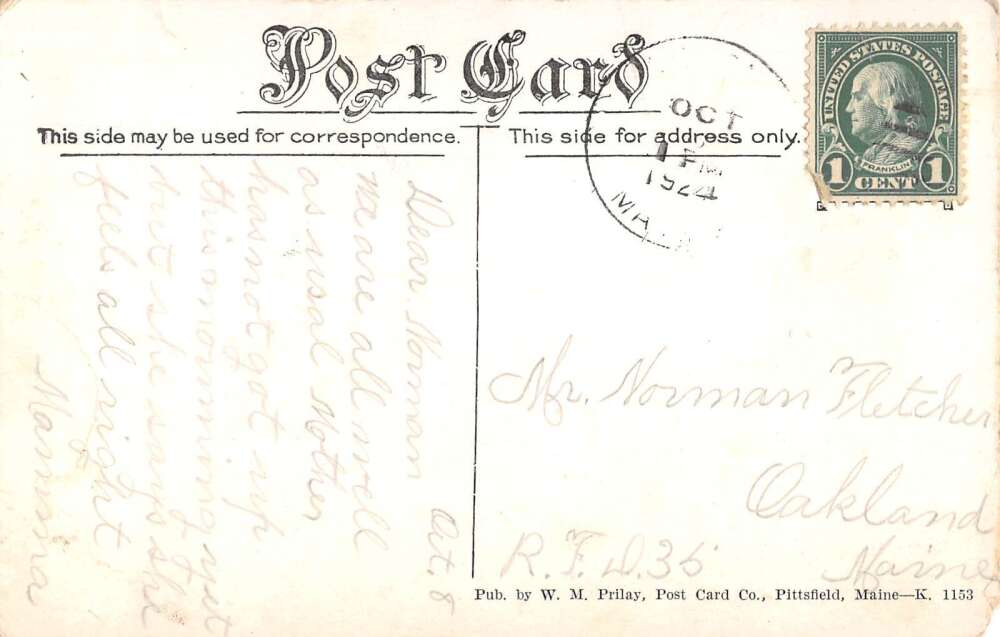 Post Card
This side may be used for correspondence.
This side for address only.
OCT
1 PM
1924
UNITED STATES POSTAGE
FRANKLIN
1 CENT 1
Oct. 8
Dear Norman
we are all well
as usal Mother
has not got up
this morning yet
but she says she
feels all right
Mamma
Mr. Norman Fletcher
Oakland
Maine
R.F.D. 35
Pub. by W. M. Prilay, Post Card Co., Pittsfield, Maine—K. 1153